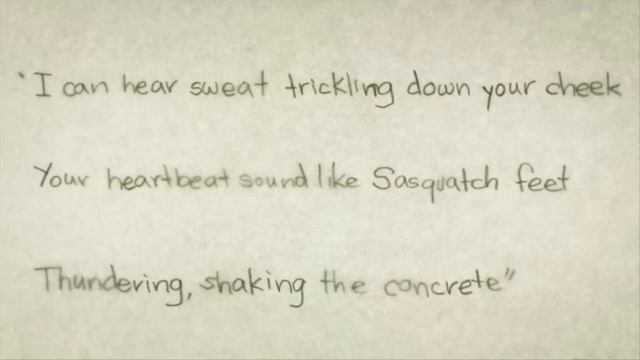 "I can hear sweat trickling down your cheek
Your heartbeat sound like Sasquatch feet
Thundering, shaking the concrete"